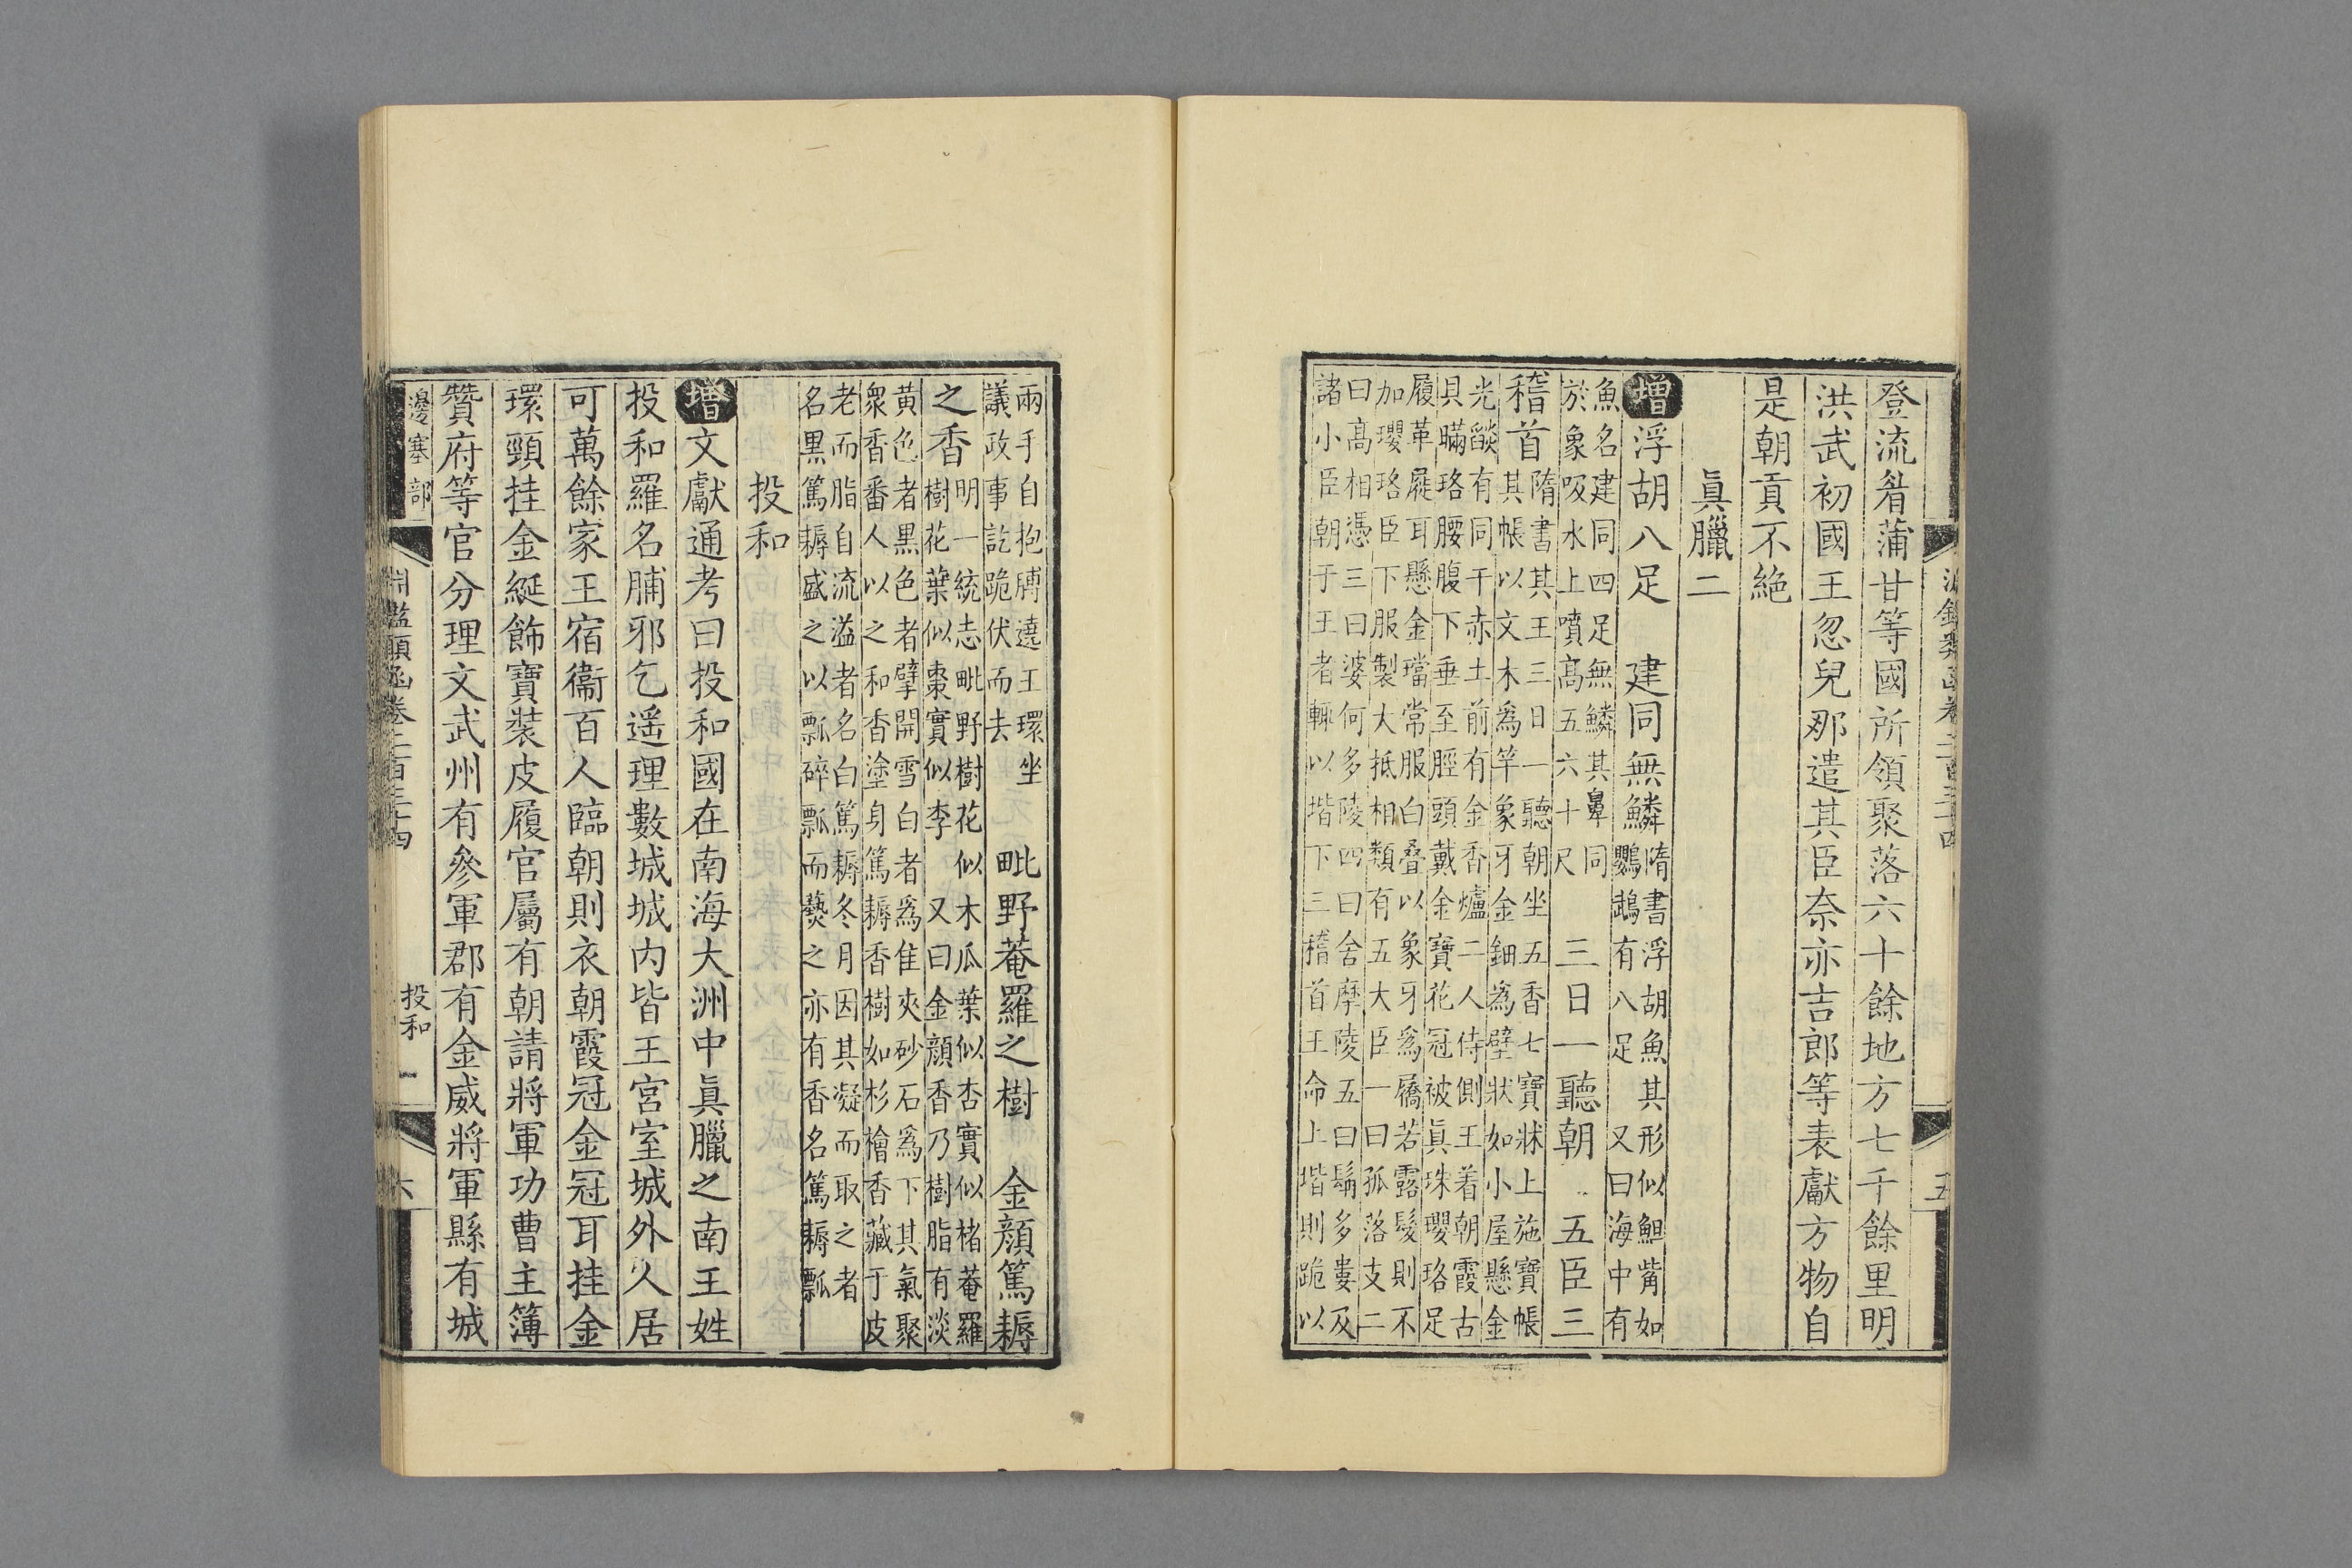 淵鑑類函卷二百三十四 五
登流眉蒲甘等國所領聚落六十餘地方七千餘里明
洪武初國王忽兒那遣其臣奈亦吉郎等表獻方物自
是朝貢不絶
眞臘二
增浮胡八足 建同無鱗
隋書浮胡魚其形似䱉觜如
鸚䳇有八足 又曰海中有
魚名建同四足無鱗其鼻同
於象吸水上噴高五六十尺
三日一聽朝 五臣三
稽首
隋書其王三日一聽朝坐五香七寶牀上施寶帳
其帳以文木爲竿象牙金鈿爲壁狀如小屋懸金
光燄有同于赤土前有金香爐二人侍側王着朝霞古
貝瞞珞腰腹下垂至脛頭戴金寶花冠被眞珠瓔珞足
履革屣耳懸金璫常服白疊以象牙爲屩若露髮則不
加瓔珞臣下服製大抵相類有五大臣一曰孤落支二
曰高相憑三曰婆何多陵四曰舍摩陵五曰髯多婁及
諸小臣朝于王者輒以堦下三稽首王命上堦則跪以
兩手自抱膊遶王環坐
議政事訖跪伏而去
毗野菴羅之樹 金顏篤耨
之香
明一統志毗野樹花似木瓜葉似杏實似楮菴羅
樹花葉似棗實似李 又曰金顏香乃樹脂有淡
黄色者黑色者擘開雪白者爲佳夾砂石爲下其氣聚
衆香番人以之和香塗身篤耨香樹如杉檜香藏于皮
老而脂自流溢者名白篤耨冬月因其凝而取之者
名黑篤耨盛之以瓢碎瓢而爇之亦有香名篤耨瓢
投和
增文獻通考曰投和國在南海大洲中眞臘之南王姓
投和羅名脯邪乞遥理數城城内皆王宮室城外人居
可萬餘家王宿衞百人臨朝則衣朝霞冠金冠耳挂金
環頸挂金綖飾寶裝皮履官屬有朝請將軍功曹主簿
贊府等官分理文武州有參軍郡有金威將軍縣有城
邊塞部 淵鑑類函卷二百三十四 投和一 六